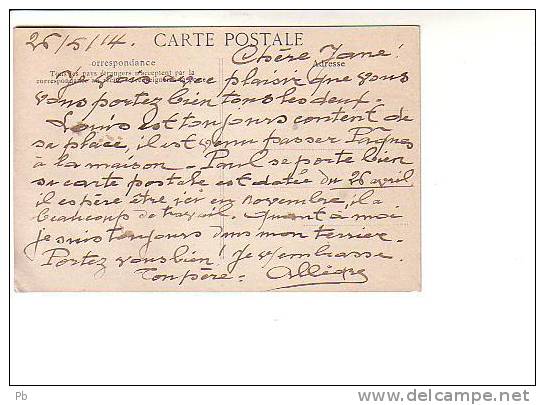 26/5/14.
CARTE POSTALE
Chère Jane!
orrespondance
Adresse
Tous les pays étrangers n'acceptent pas la
correspondance au
avec plaisir que vous
vous portez bien tous les deux.
Louis est toujours content de
sa place, il est venu passer Pâques
à la maison. Paul se porte bien
sa carte postale est datée du 26 avril
il espère être ici en novembre, il a
beaucoup de travail. Quant à moi
je suis toujours dans mon terrier.
Portez vous bien! Je v/embrasse.
Ton père. Allègre
Pb
delcampe.net